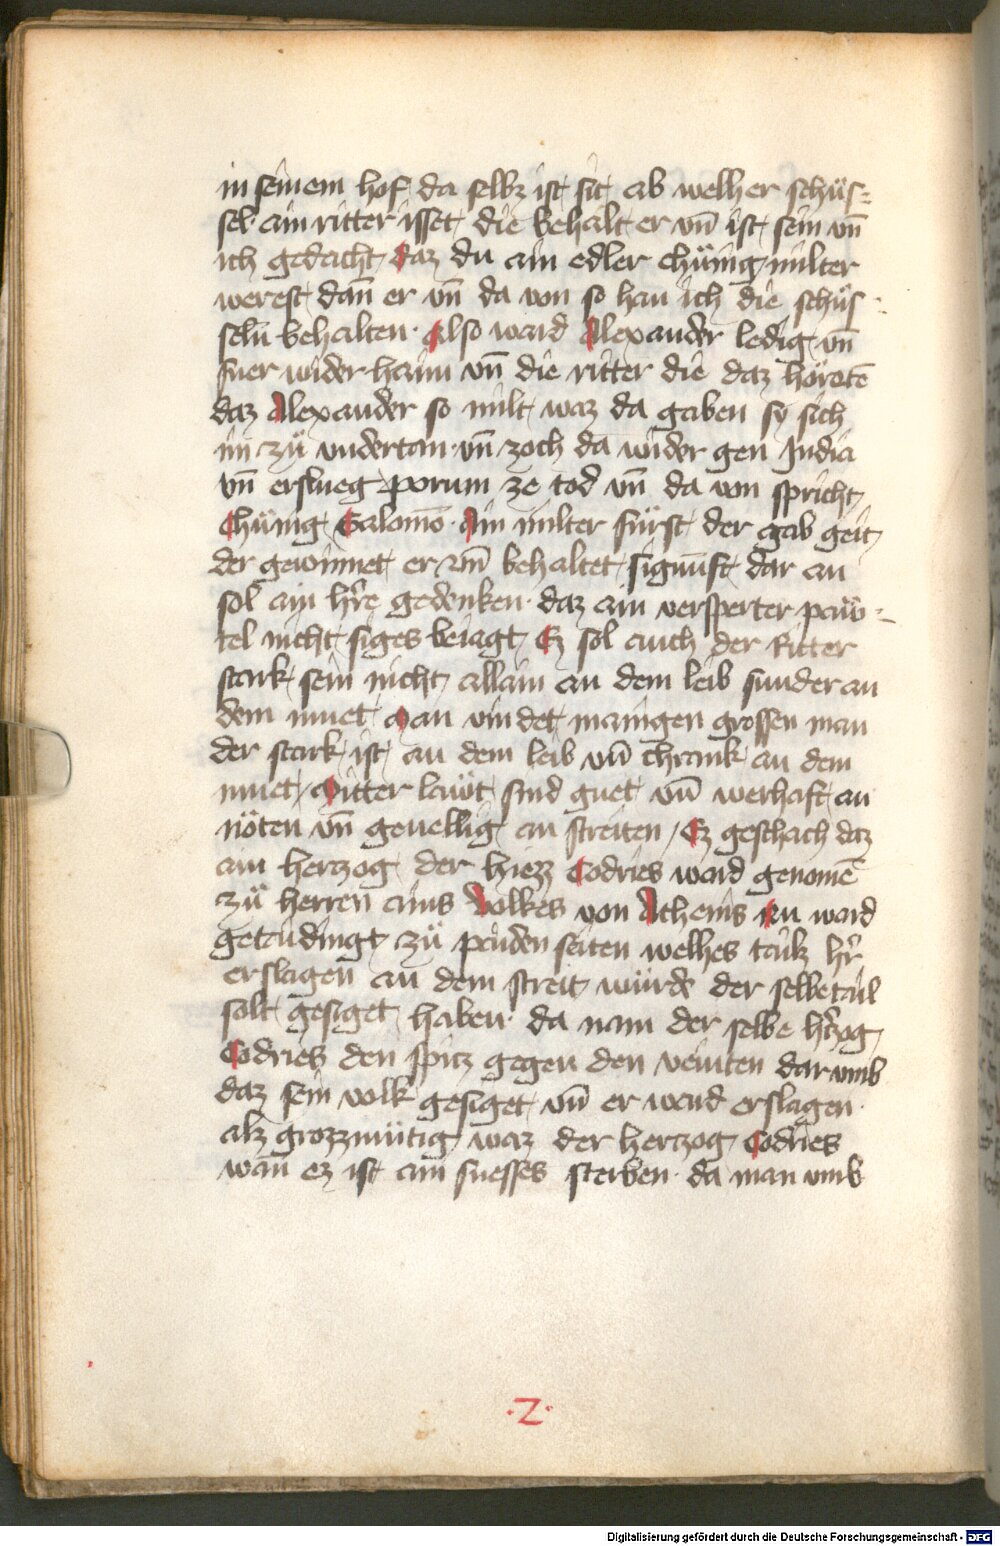 in seinem hof da selbz ist sit ab welher schüs-
sel ain ritter isset die behalt er vn̄ ist sein vn̄
ich gedacht daz du ain edler chünig milter
werest dan̄ er vn̄ da von so han ich die schüs
seln̄ behalten. Also ward Alexander ledig vn̄
fuer wider haim vn̄ die ritter die daz hörotē
daz Alexander so milt waz da gaben sy sich
im zü vndertan. vn̄ zoch da wider gen India
vn̄ erslueg porum ze tod vn̄ da von spricht
Chünig Salomō. Ain milter fürst der gab geit
der gewinnet er vn̄ behaltet signūft dar an
sol ain hr̄e gedenken. daz ain versperter peüt-
tel nicht siges beiagt Ez sol auch der Ritter
stark sein nicht allain an dem leib sunder an
dem muet Man vindet manigen grossen man
der stark ist an dem leib vn̄ chrank an dem
muet / Ritter laüt sind guet vn̄ werhaft an
nöten vn̄ geuellig an streiten / Ez geschach daz
ain hertzog der hiezz Codries ward genomē
zü herren ains Volkes von Athenis nu ward
getaidingt zü paiden seiten welhes tailz hr̄
erslagen an dem streit würde der selbe tail
solt gesiget haben da nam der selbe hr̄zog
Codries den spitz gegen den veinten dar vmb
daz sein volk gesiget vn̄ er ward erslagen.
alz grozzmütig waz der hertzog Codries
wan̄ ez ist ain suesses sterben. da man vmb
.2.
Digitalisierung gefördert durch die Deutsche Forschungsgemeinschaft - DFG